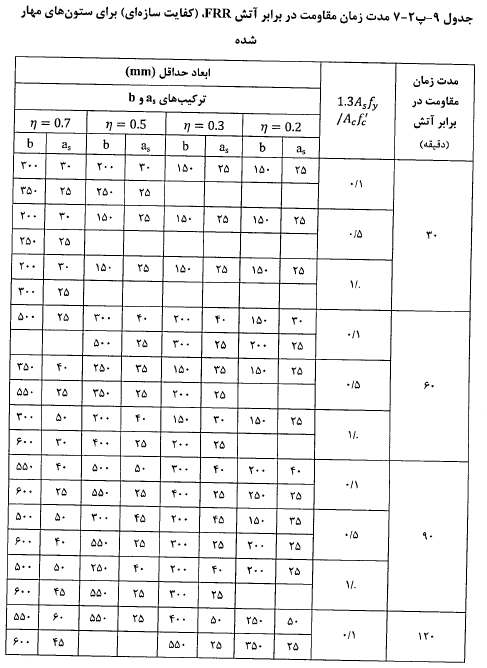 جدول ۹-پ۲-۷ مدت زمان مقاومت در برابر آتش FRR، (کفایت سازه‌ای) برای ستون‌های مهار
شده
مدت زمان
مقاومت در
برابر آتش
(دقیقه)
1.3A_s f_y
/A_c f'_c
ابعاد حداقل (mm)
ترکیب‌های a_s و b
η = 0.2 η = 0.3 η = 0.5 η = 0.7
a_s b a_s b a_s b a_s b
۳۰
۰/۱
۲۵ ۱۵۰ ۲۵ ۱۵۰ ۳۰ ۲۰۰ ۳۰ ۳۰۰
۲۵ ۲۵۰ ۲۵ ۳۵۰
۰/۵
۲۵ ۱۵۰ ۲۵ ۱۵۰ ۲۵ ۱۵۰ ۳۰ ۲۰۰
۲۵ ۲۵۰
۱/.
۲۵ ۱۵۰ ۲۵ ۱۵۰ ۲۵ ۱۵۰ ۳۰ ۲۰۰
۲۵ ۳۰۰
۶۰
۰/۱
۳۰ ۱۵۰ ۴۰ ۲۰۰ ۴۰ ۳۰۰ ۲۵ ۵۰۰
۲۵ ۲۰۰ ۲۵ ۳۰۰ ۲۵ ۵۰۰
۰/۵
۲۵ ۱۵۰ ۳۵ ۱۵۰ ۳۵ ۲۵۰ ۴۰ ۳۵۰
۲۵ ۲۰۰ ۲۵ ۳۵۰ ۲۵ ۵۵۰
۱/.
۲۵ ۱۵۰ ۳۰ ۱۵۰ ۴۰ ۲۰۰ ۵۰ ۳۰۰
۲۵ ۲۰۰ ۲۵ ۴۰۰ ۳۰ ۶۰۰
۹۰
۰/۱
۴۰ ۲۰۰ ۴۰ ۳۰۰ ۵۰ ۵۰۰ ۴۰ ۵۵۰
۲۵ ۲۵۰ ۲۵ ۴۰۰ ۲۵ ۵۵۰ ۲۵ ۶۰۰
۰/۵
۳۵ ۱۵۰ ۴۵ ۲۰۰ ۴۵ ۳۰۰ ۵۰ ۵۰۰
۲۵ ۲۰۰ ۲۵ ۳۰۰ ۲۵ ۵۵۰ ۴۰ ۶۰۰
۱/.
۲۵ ۲۰۰ ۴۰ ۲۰۰ ۴۰ ۲۵۰ ۵۰ ۵۰۰
۲۵ ۳۰۰ ۲۵ ۵۵۰ ۴۵ ۶۰۰
۱۲۰
۰/۱
۵۰ ۲۵۰ ۵۰ ۴۰۰ ۲۵ ۵۵۰ ۶۰ ۵۵۰
۲۵ ۳۵۰ ۲۵ ۵۵۰ ۴۵ ۶۰۰